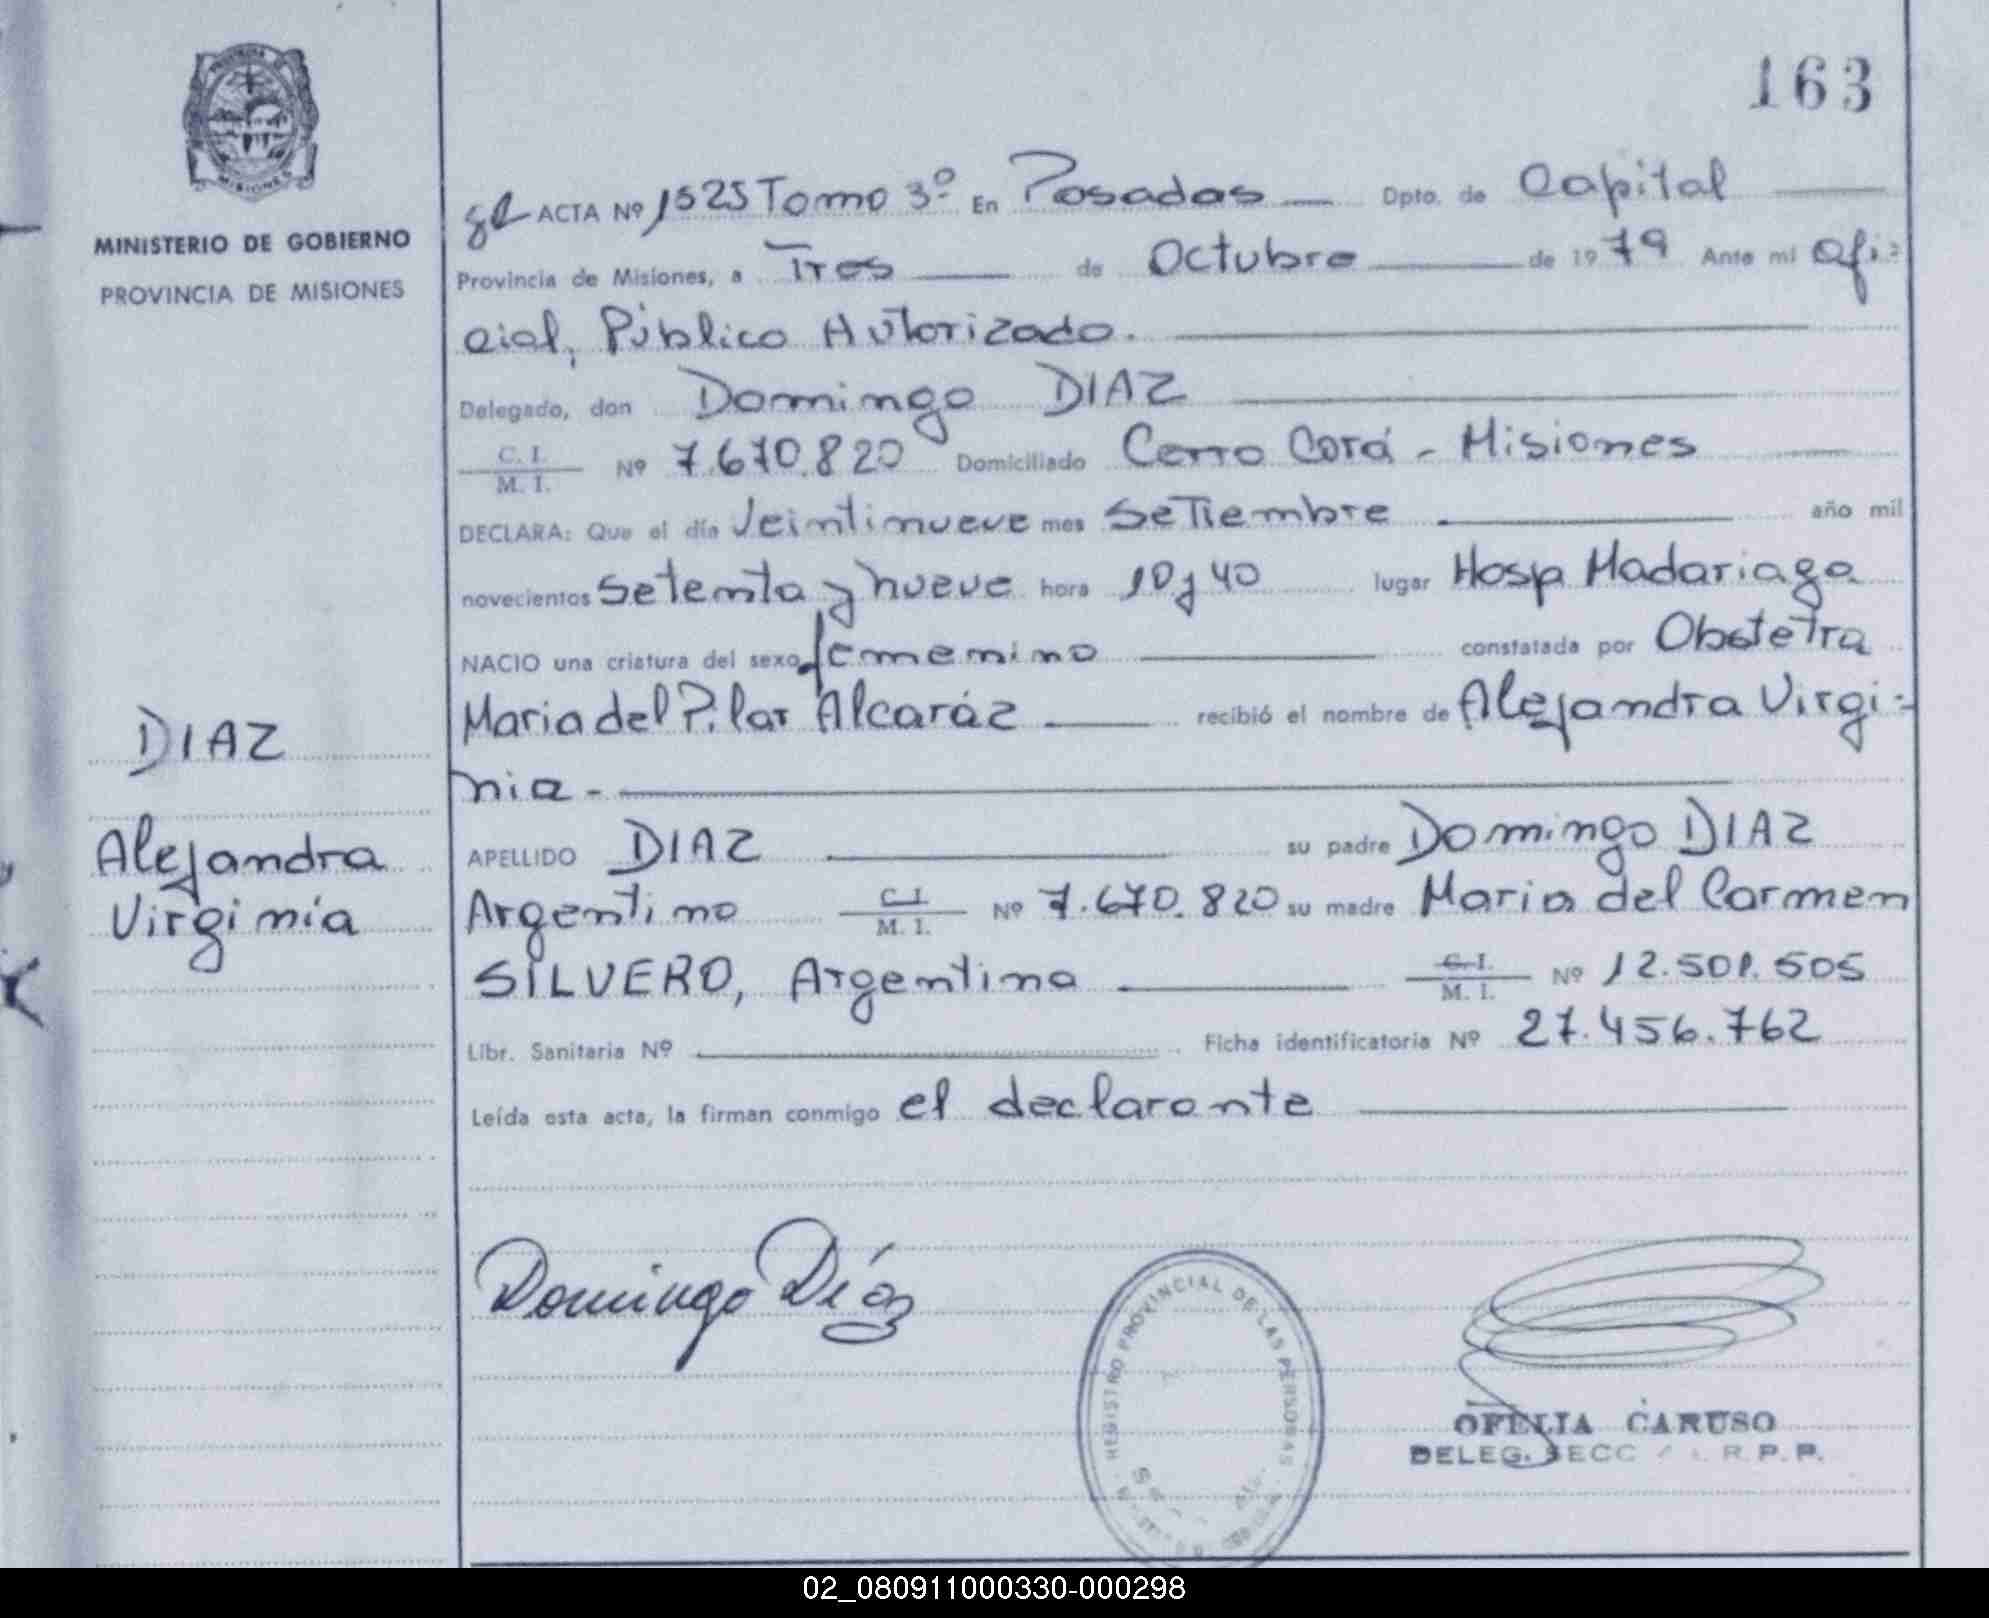 163
MINISTERIO DE GOBIERNO
PROVINCIA DE MISIONES
ACTA Nº 1525 Tomo 3º En Posadas Dpto. de Capital
Provincia de Misiones, a Tres de Octubre de 1979 Ante mi Ofi-
cial, Público Autorizado.
Delegado, don Domingo DIAZ
C. I.
M. I. Nº 7.670.820 Domiciliado Cerro Corá - Misiones
DECLARA: Que el día Veintinueve mes Setiembre año mil
novecientos Setenta y nueve hora 10 y 40 lugar Hosp Madariaga
NACIO una criatura del sexo femenino constatada por Obstetra
Maria del Pilar Alcaráz recibió el nombre de Alejandra Virgi-
nia -
APELLIDO DIAZ su padre Domingo DIAZ
Argentino C. I.
M. I. Nº 7.670.820 su madre Maria del Carmen
SILVERO, Argentina C. I.
M. I. Nº 12.501.505
Libr. Sanitaria Nº Ficha identificatoria Nº 27.456.762
Leída esta acta, la firman conmigo el declarante
DIAZ
Alejandra
Virginia
Domingo Díaz
REGISTRO PROVINCIAL DE LAS PERSONAS
OFELIA CARUSO
DELEG. SECC R.P.P.
02_080911000330-000298